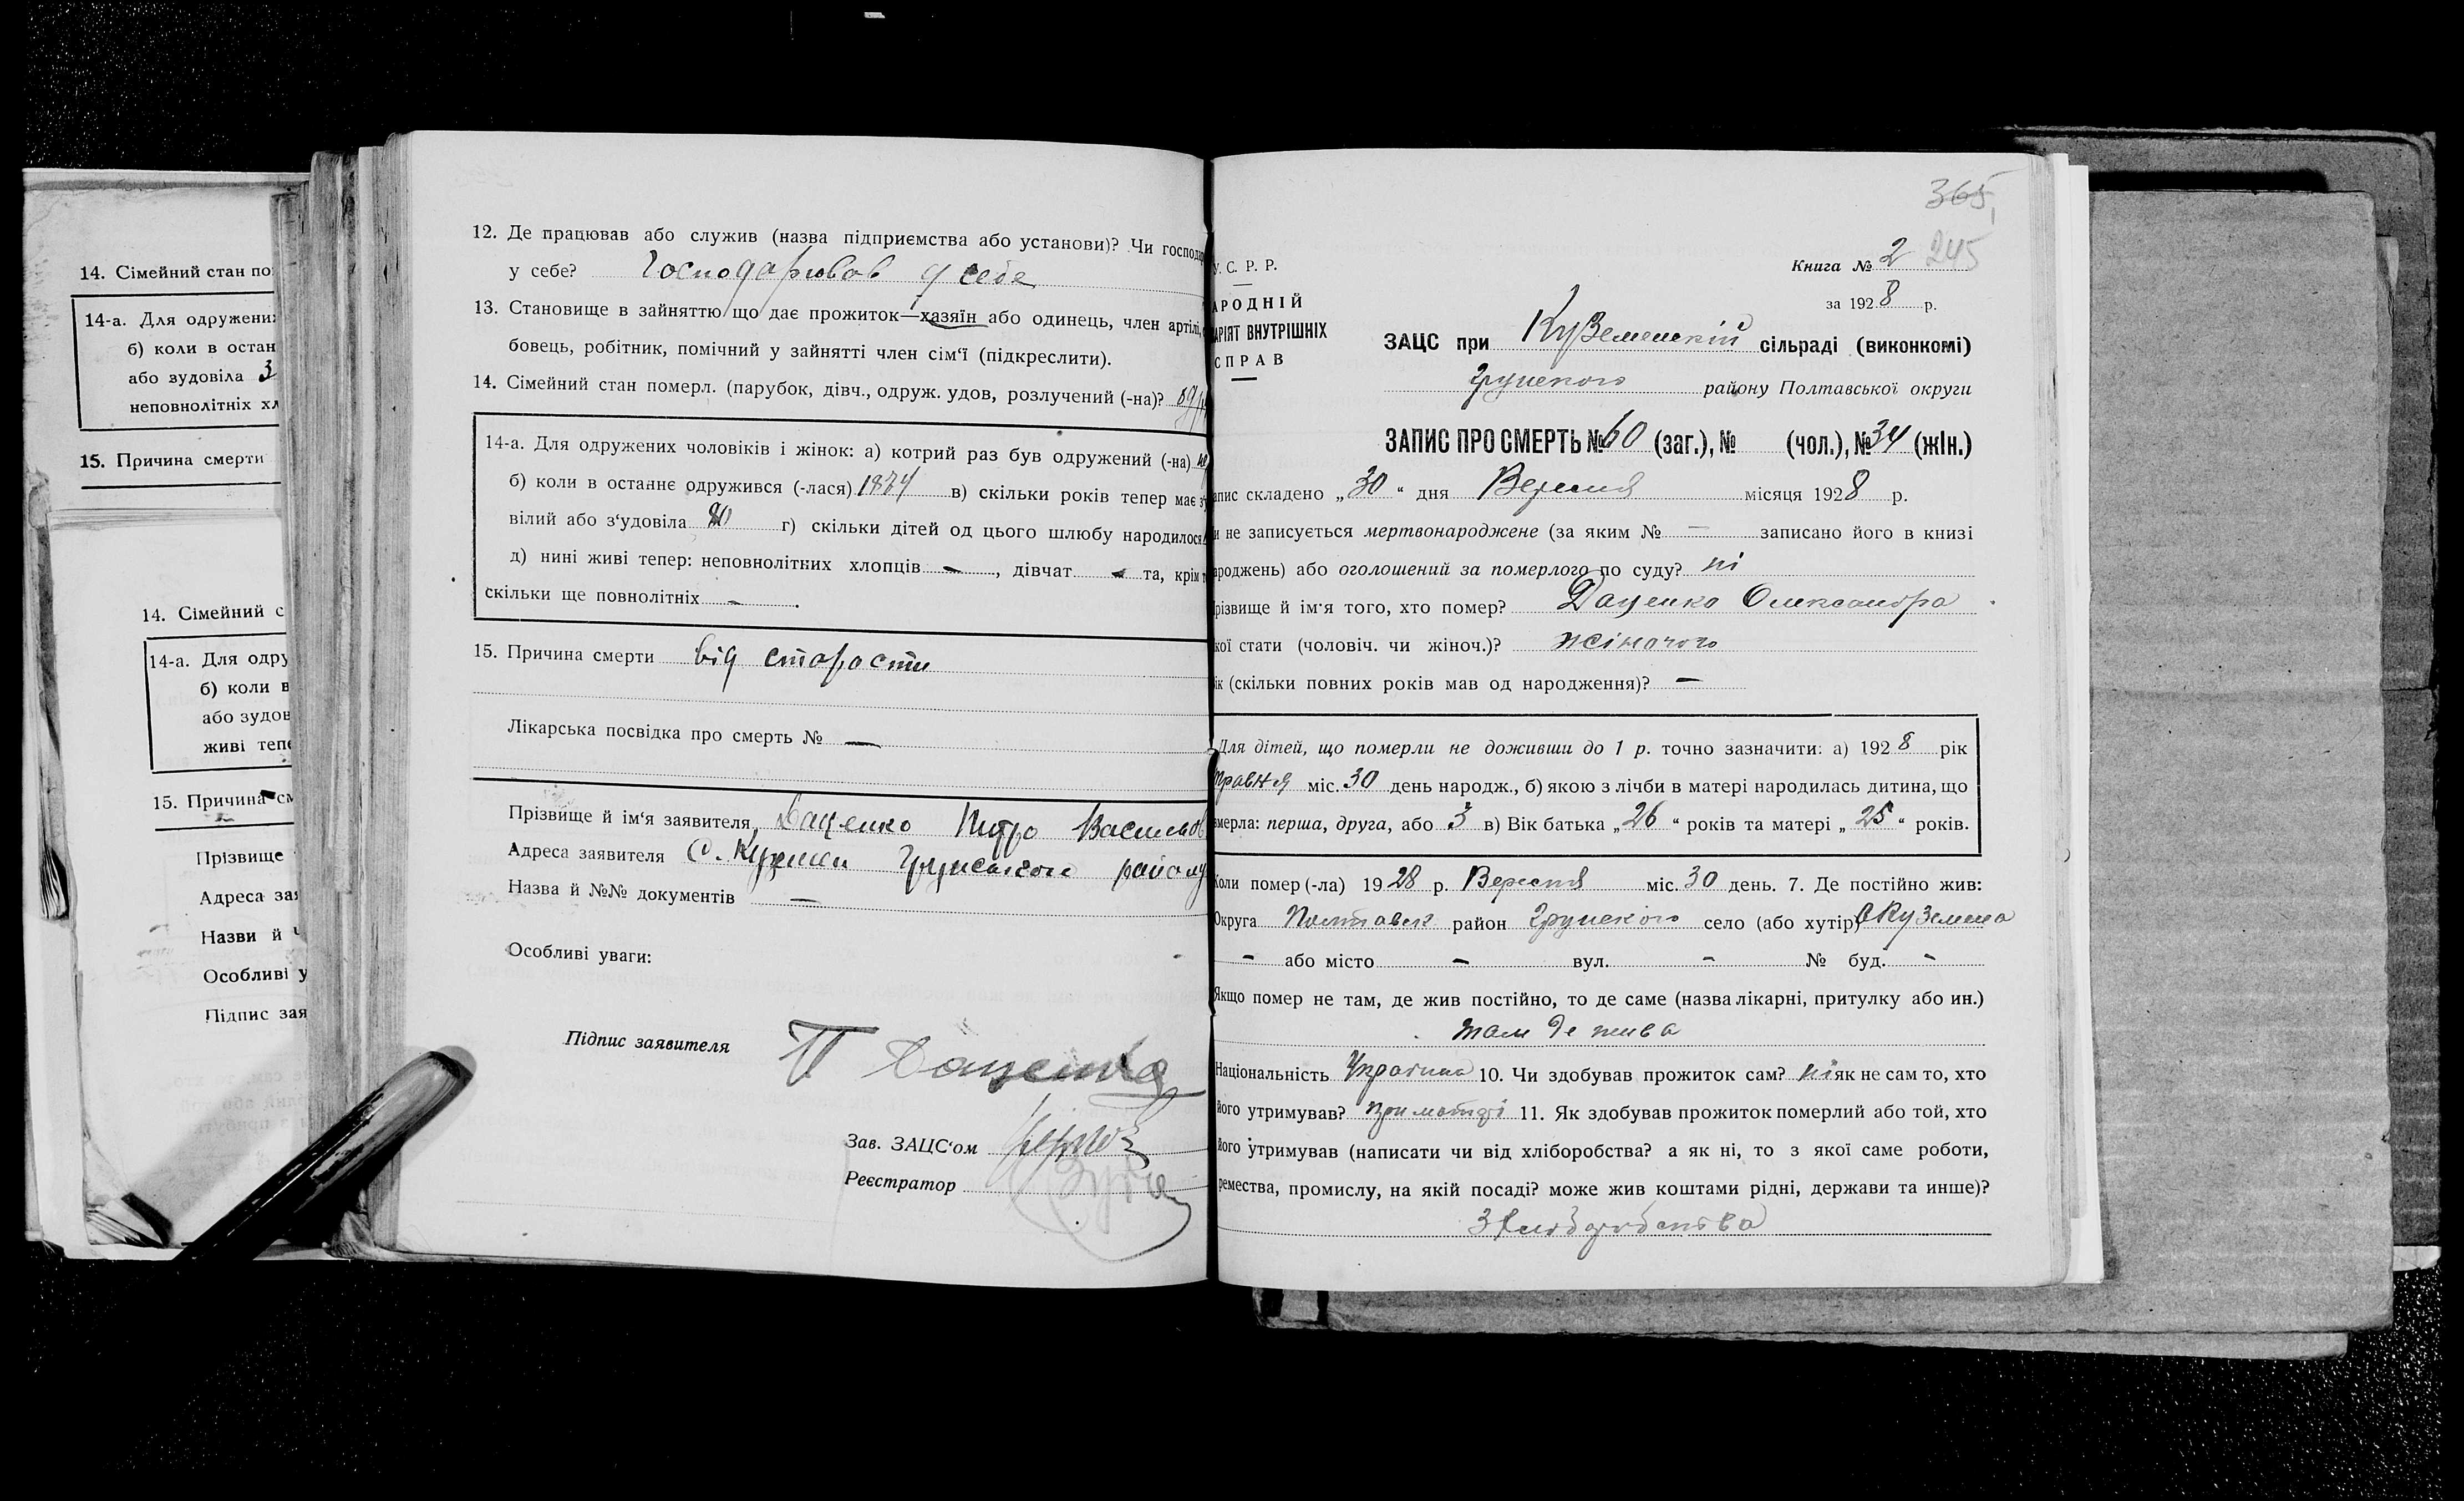 14. Сімейний стан по
14-а. Для одружених
б) коли в остан
або зудовіла 3
неповнолітніх хл
15. Причина смерти
14. Сімейний с
14-а. Для одру
б) коли в
або зудов
живі тепе
15. Причина см
Прізвище
Адреса зая
Назви й
Особливі у
Підпис зая
12. Де працював або служив (назва підприємства або установи)? Чи господар
у себе? Господарював у себе
13. Становище в зайняттю що дає прожиток—хазяїн або одинець, член артілі,
бовець, робітник, помічний у зайнятті член сім'ї (підкреслити).
14. Сімейний стан померл. (парубок, дівч., одруж. удов, розлучений (-на)?
14-а. Для одружених чоловіків і жінок: а) котрий раз був одружений (-на)
б) коли в останнє одружився (-лася) 1874 в) скільки років тепер має з
вілий або з'удовіла г) скільки дітей од цього шлюбу народилося
д) нині живі тепер: неповнолітних хлопців — , дівчат — та, крім т
скільки ще повнолітніх — .
15. Причина смерти від старости
Лікарська посвідка про смерть № —
Прізвище й ім'я заявителя Даценко Петро Васильов
Адреса заявителя С. Куземен Грунського району
Назва й №№ документів —
Особливі уваги:
Підпис заявителя П Даценко
Зав. ЗАЦС'ом
Реєстратор
365
245
Книга № 2
за 1928 р.
У. С. Р. Р.
АРОДНІЙ
АРІЯТ ВНУТРІШНІХ
СПРАВ
ЗАЦС при Куземенскій сільраді (виконкомі)
Грунского району Полтавської округи
ЗАПИС ПРО СМЕРТЬ № 60 (заг.), № (чол.), № 34 (жін.)
апис складено „30“ дня Вересня місяця 1928 р.
и не записується мертвонароджене (за яким № — записано його в книзі
ароджень) або оголошений за померлого по суду? ні
різвище й ім'я того, хто помер? Даценко Олександра
кої стати (чоловіч. чи жіноч.)? жіночого
ік (скільки повних років мав од народження)? —
Для дітей, що померли не доживши до 1 р. точно зазначити: а) 1928 рік
травня міс. 30 день народж., б) якою з лічби в матері народилась дитина, що
мерла: перша, друга, або 3 в) Вік батька „26“ років та матері „25“ років.
Коли помер (-ла) 1928 р. Вересня міс. 30 день. 7. Де постійно жив:
Округа Полтавск район Грунского село (або хутір) с Куземена
— або місто — вул. — № буд. —
Якщо помер не там, де жив постійно, то де саме (назва лікарні, притулку або ин.)
там де жила
Національність 10. Чи здобував прожиток сам? ні як не сам то, хто
його утримував? при матері 11. Як здобував прожиток померлий або той, хто
його утримував (написати чи від хліборобства? а як ні, то з якої саме роботи,
ремества, промислу, на якій посаді? може жив коштами рідні, держави та инше)?
З хліборобства